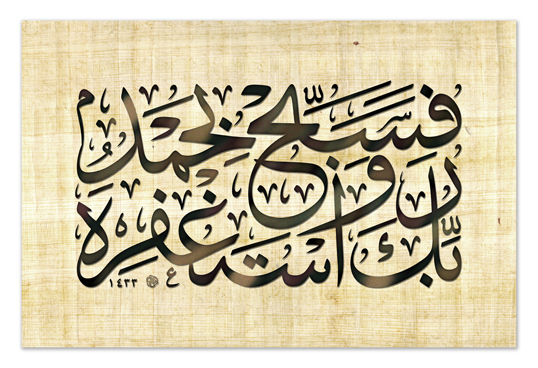 فَسَبِّحْ بِحَمْدِ
رَبِّكَ وَاسْتَغْفِرْهُ
ع ١٤٣٣